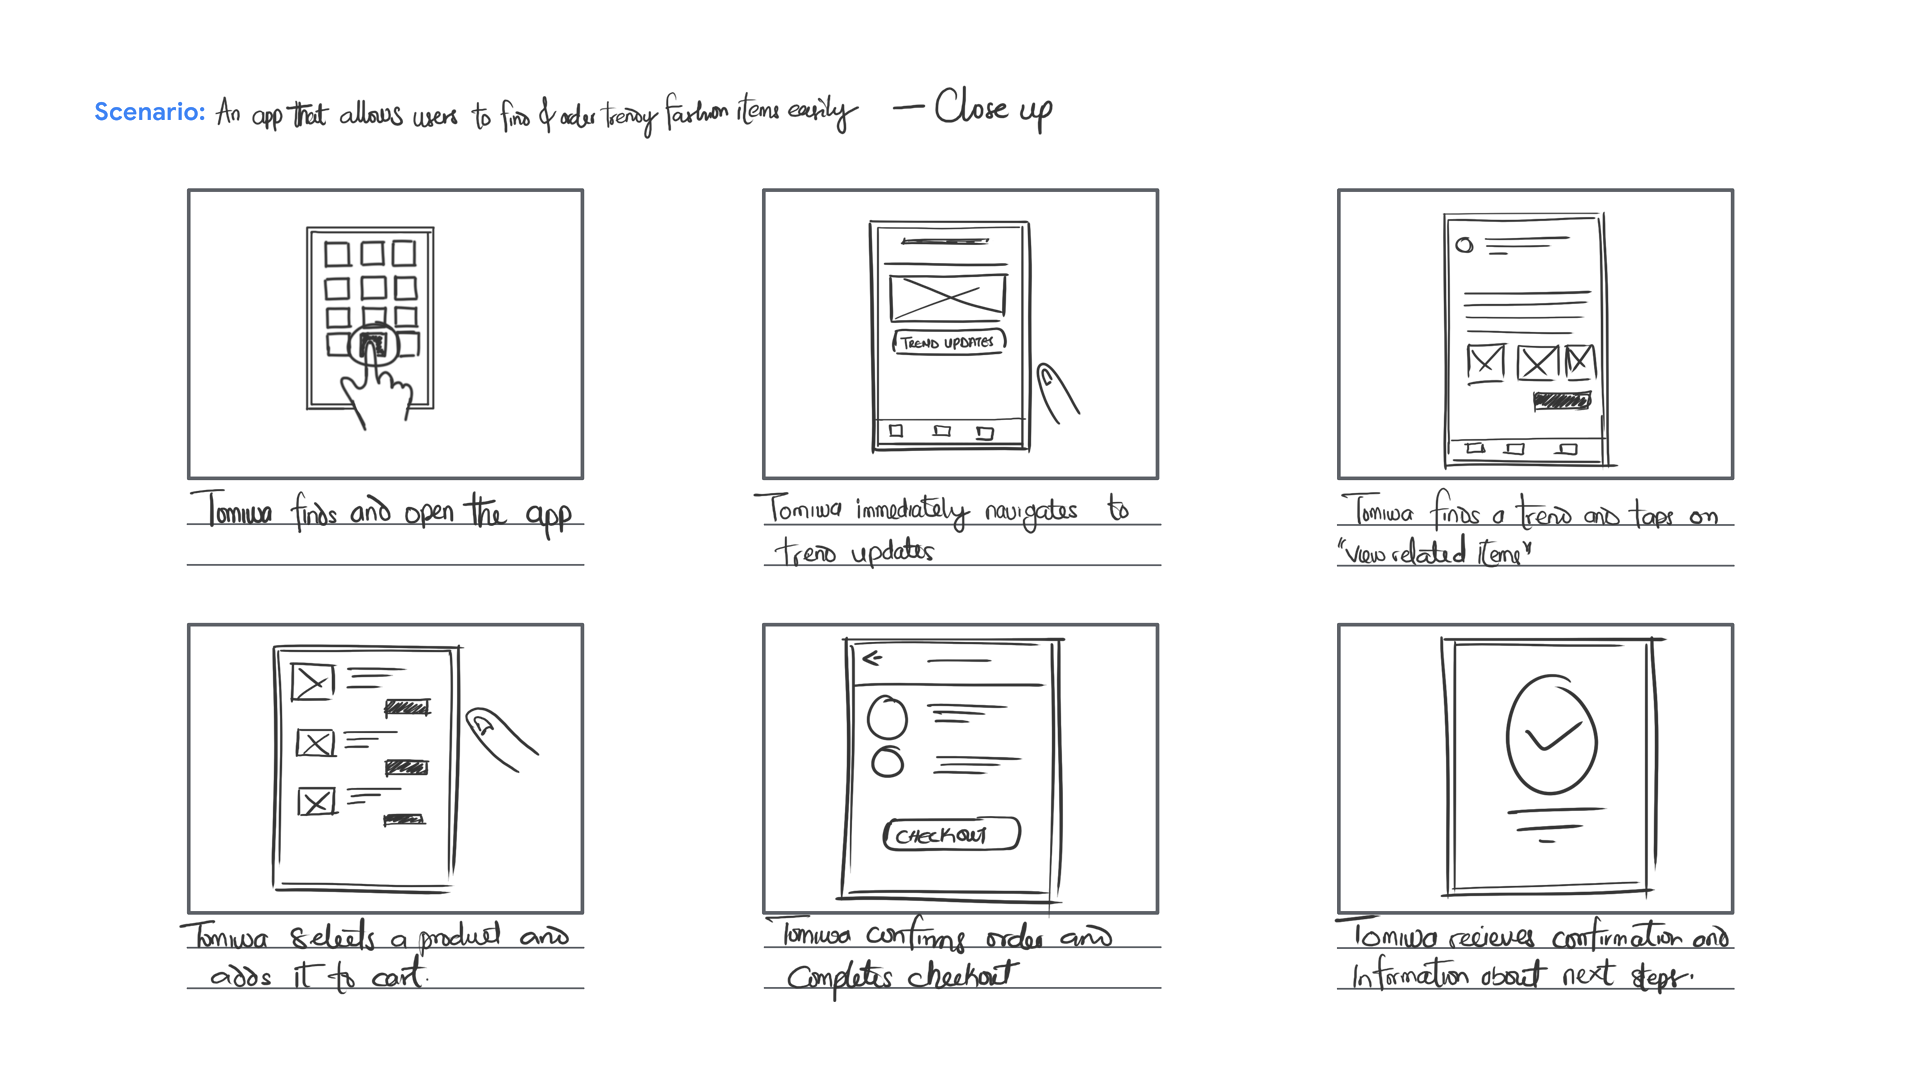 Scenario: An app that allows users to find & order trendy fashion items easily — Close up
TREND UPDATES
Tomiwa finds and open the app
Tomiwa immediately navigates to
trend updates
Tomiwa finds a trend and taps on
"view related items"
CHECKOUT
Tomiwa selects a product and
adds it to cart.
Tomiwa confirms order and
Completes checkout
Tomiwa recieves confirmation and
Information about next steps.